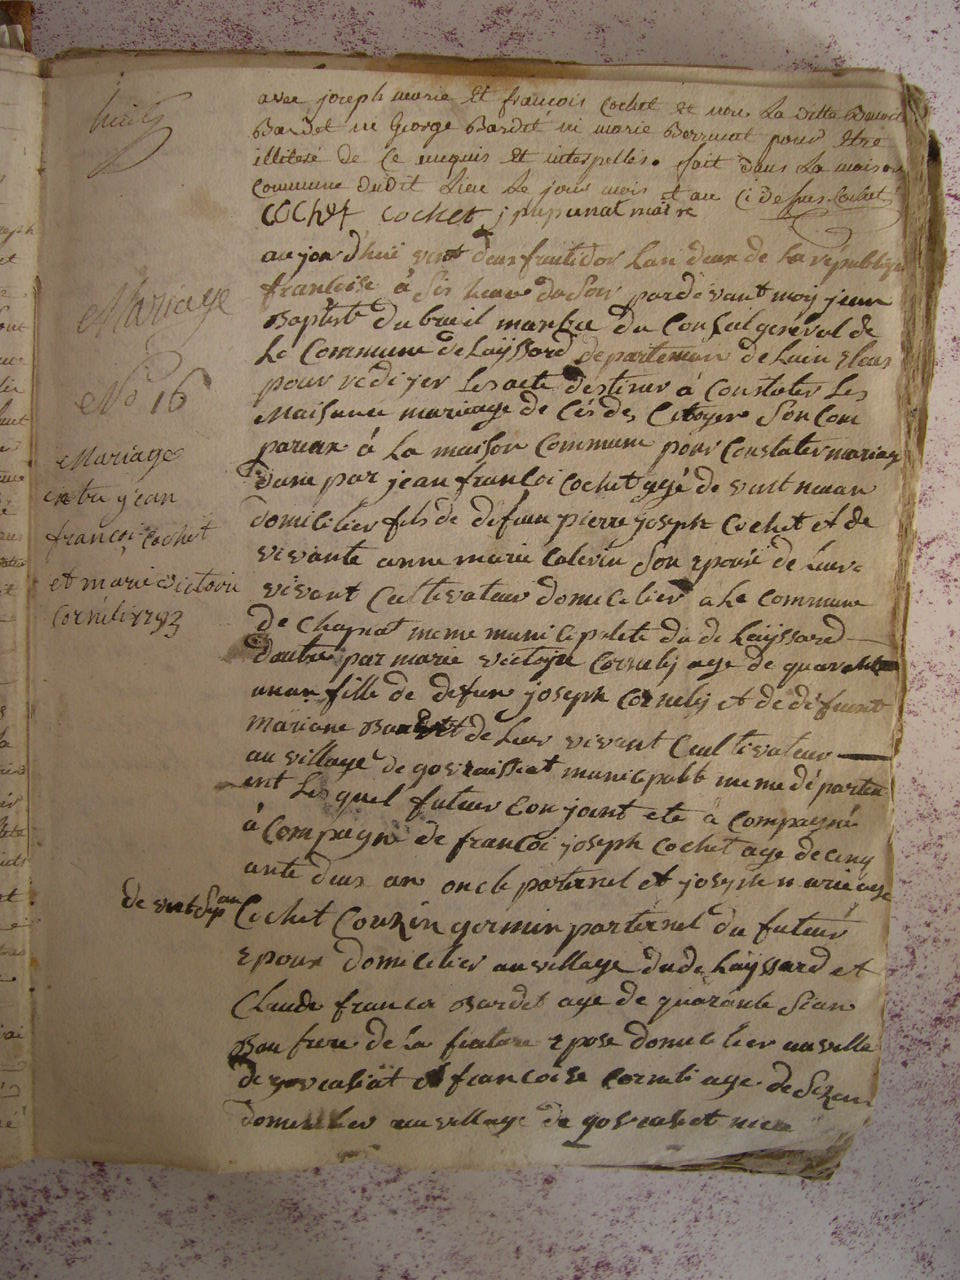 huit
avec joseph marie Et francois Cochet et non La ditte Benoit
Bardet ni George Bardet ni marie Berrucat pour Etre
illiteré de Ce enquis Et interpelles. fait dans La maison
Commune dudit Lieu Le jour mois et an Ci dessus. Cochet
COCHET Cochet maire
aujourd'huÿ vint deux fruitidor Lan deux de La républiqu
francoise à Six heur du Soir pardevant moÿ jean
Baptiste dubreuil manbre du Conseil général de
Le Commune de Laÿssard departemen de Lain Eleus
pour redijer Les acte destiner à Constater Les
Naisance mariage de Cés des Citoyen Son Com
parux à La maison Commune pour Constater mariag
dune par jean francoi Cochet agé de vint neuan
domicilier fils de defeun pierre joseph Cochet et de
vivante anne marie Calevin Son epouse de Leur
vivant Cultivateur domicilier a Le Commune
de Chapiat meme municipalité du de Laÿssard
dautre par marie victoire Cornelij age de quarante
unan fille de defun joseph Cornelij et de défuint
mariane de Leur vivant Cultivateur
au village de govraissiat municipalit meme départem
ent Les quel futeur Conjoint eté a Compagné
à Compagné de francoi joseph Cochet age de cinq
ante deux an oncle paternel et joseph marie age
de vint Sep an Cochet Couzin germin parternel du futeur
Epoux domicilier au village du de Laÿssard et
Claude francoi Bardet age de quarante Sian
Bau frere de La future Epose domicilier au villa
de govraissiat et francoise Cornelij age de Sezan
domicilier au village de govraissiat mem
Mariage
No 16
Mariage
entre jean
francoi Cochet
et marie victoire
Cornéli 1793